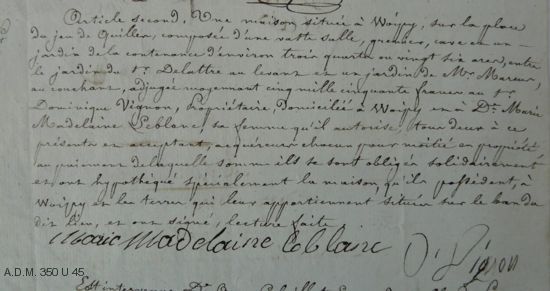 Article second, Une maison située à Woippy, sur la place
du jeu de Quiller, composée d'une vatte salle, grenier, cave et un
jardin de la contenance d'environ trois quarts ou vingt six ares, entre
le jardin du Sr. Delattre au levant et un jardin de Mr.
au couchant, adjugée moyennant cinq mille cinquante francs au Sr.
Dominique Vignon, propriétaire, domicilié à Woippy et à De. Marie
Madelaine Leblanc, sa femme qu'il autorise, tous deux à ce
présents et acceptant, acquéreurs chacun pour moitié en propriété
au paiement de laquelle somme ils se sont obligés solidairement
et ont hypothéqué spécialement la maison, qu'ils possèdent, à
Woippy et les terres qui leur appartiennent située sur le ban du
dit lieu, et ont signé, lecture faite
Marie Madelaine Leblanc
D. Vignon
A.D.M. 350 U 45
Est intervenu